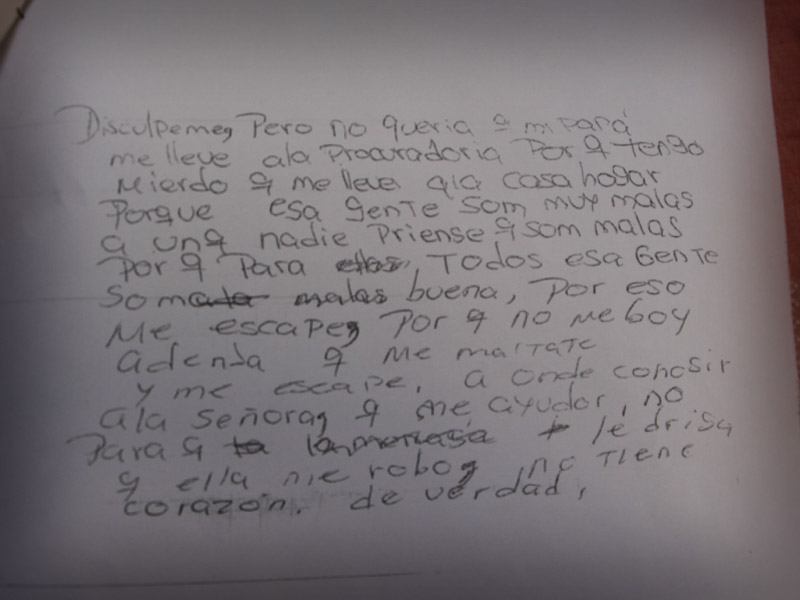 Disculpeme, Pero no queria q mi papá
me lleve ala Procuradoria Por q tengo
Mierdo q me lleve ala casa hogar
Porque esa gente som muy malas
a unq nadie Priense q som malas
Por q Para ellos, Todos esa Gente
Som malas buena, Por eso
Me escape, Por q no me boy
q me maltate
y me escape, a onde conosir
ala señora, q me ayudor, no
Para q le drisa
q ella me robo, no Tiene
corazón. de verdad,